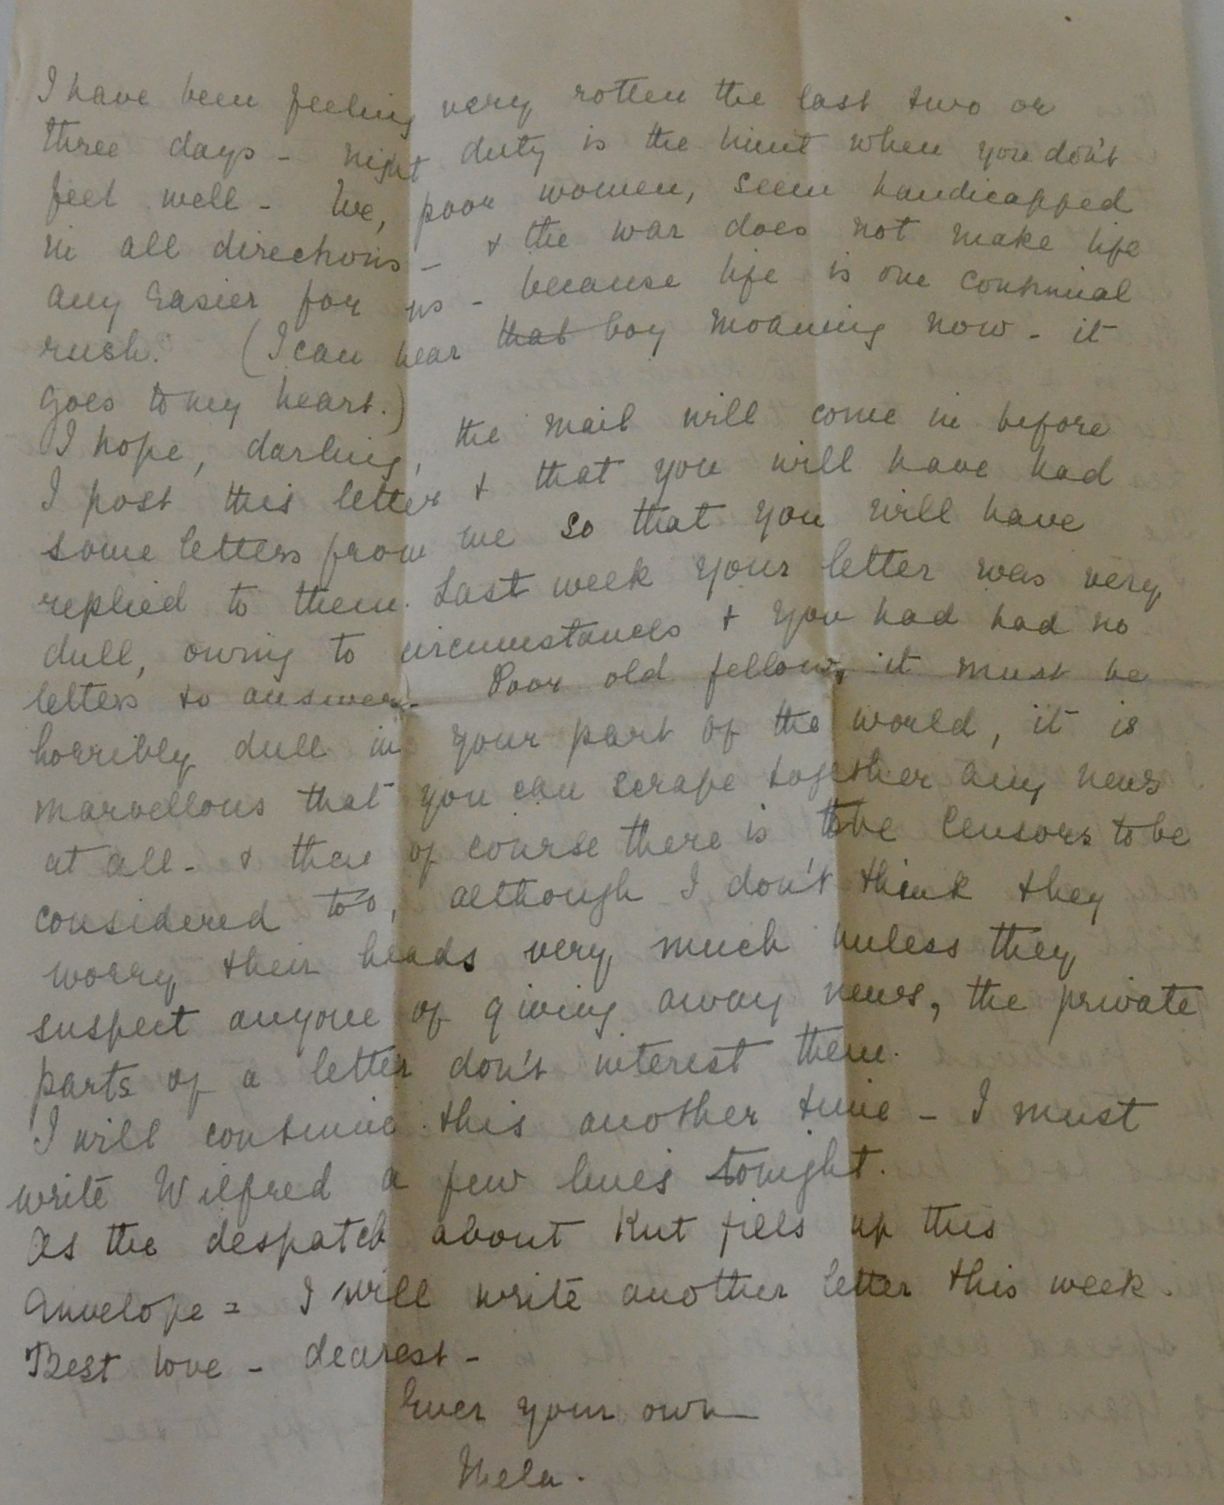 I have been feeling very rotten the last two or
three days - night duty is the limit when you don't
feel well - We, poor women, seem handicapped
in all directions - & the war does not make life
any easier for us - because life is one continual
rush. (I can hear that boy moaning now - it
goes to my heart.)
I hope, darling, the mail will come in before
I post this letter & that you will have had
some letters from me so that you will have
replied to them. Last week your letter was very
dull, owing to circumstances & you had had no
letters to answer. Poor old fellow, it must be
horribly dull in your part of the world, it is
marvellous that you can scrape together any news
at all - & then of course there is the Censors to be
considered too, although I don't think they
worry their heads very much unless they
suspect anyone of giving away news, the private
parts of a letter don't interest them.
I will continue this another time - I must
write Wilfred a few lines tonight.
As the despatch about Kut fills up this
envelope = I will write another letter this week.
Best love - dearest -
Ever your own